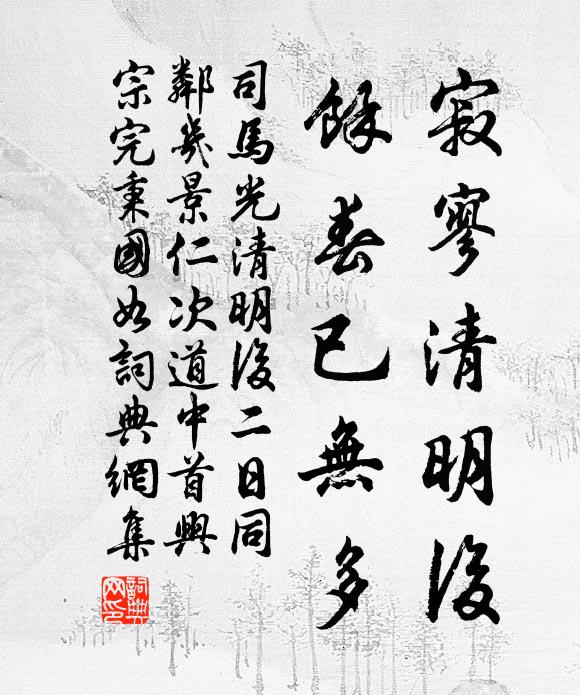 寂寥清明後
餘春已無多
司馬光清明後二日同
鄰幾景仁次道中首興
宗完秉國如詞典網集
詞典網印